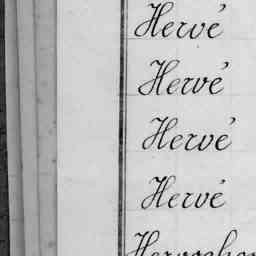 Hervé
Hervé
Hervé
Hervé